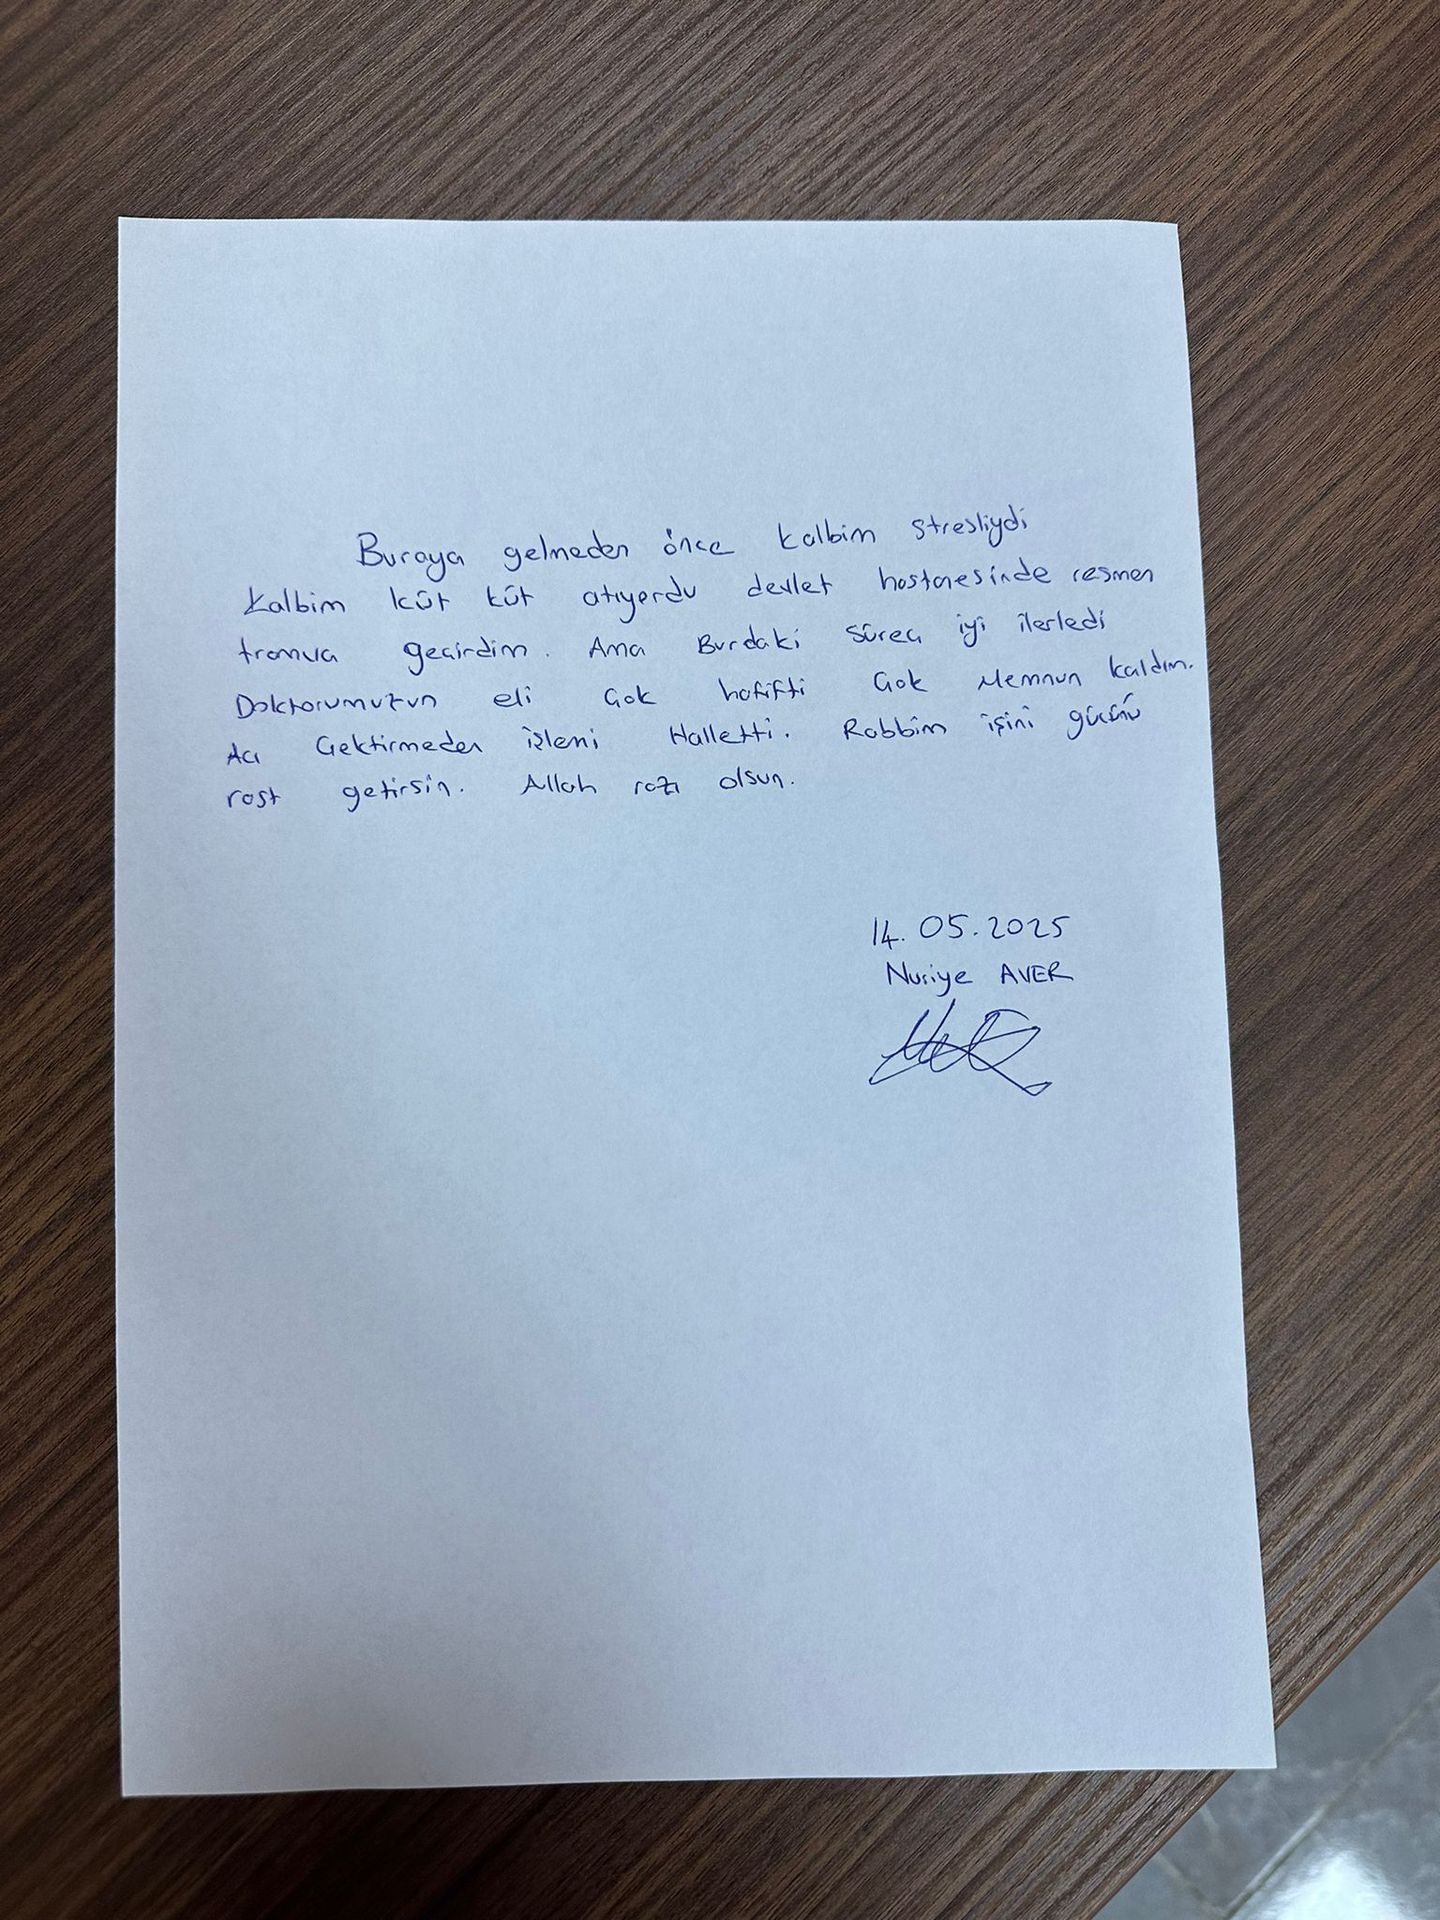 Buraya gelmeden önce kalbim stresliydi
kalbim küt küt atıyordu devlet hastanesinde resmen
tramva geçirdim. Ama Burdaki süreç iyi ilerledi
Doktorumuzun eli çok hafifti çok Memnun kaldım.
Acı Çektirmeden işlemi Halletti. Rabbim işini gücünü
rast getirsin. Allah razı olsun.
14.05.2025
Nuriye AVER